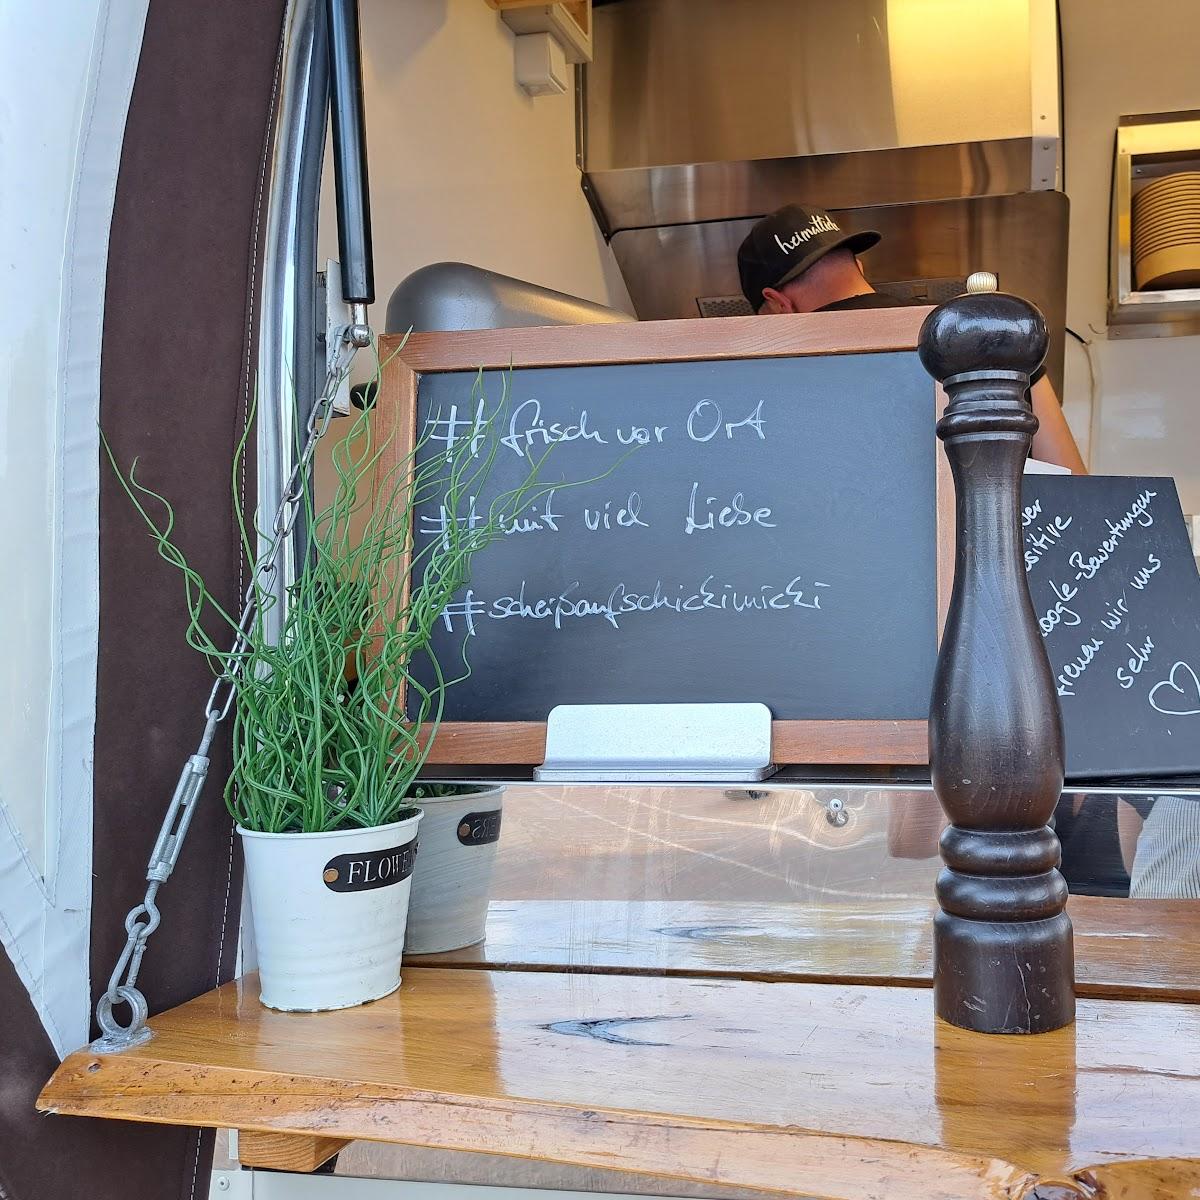 heimatlich
# frisch vor Ort
# mit viel Liebe
#scheißaufschickimicki
Google-Bewertungen
freuen wir uns
sehr
FLOWERS